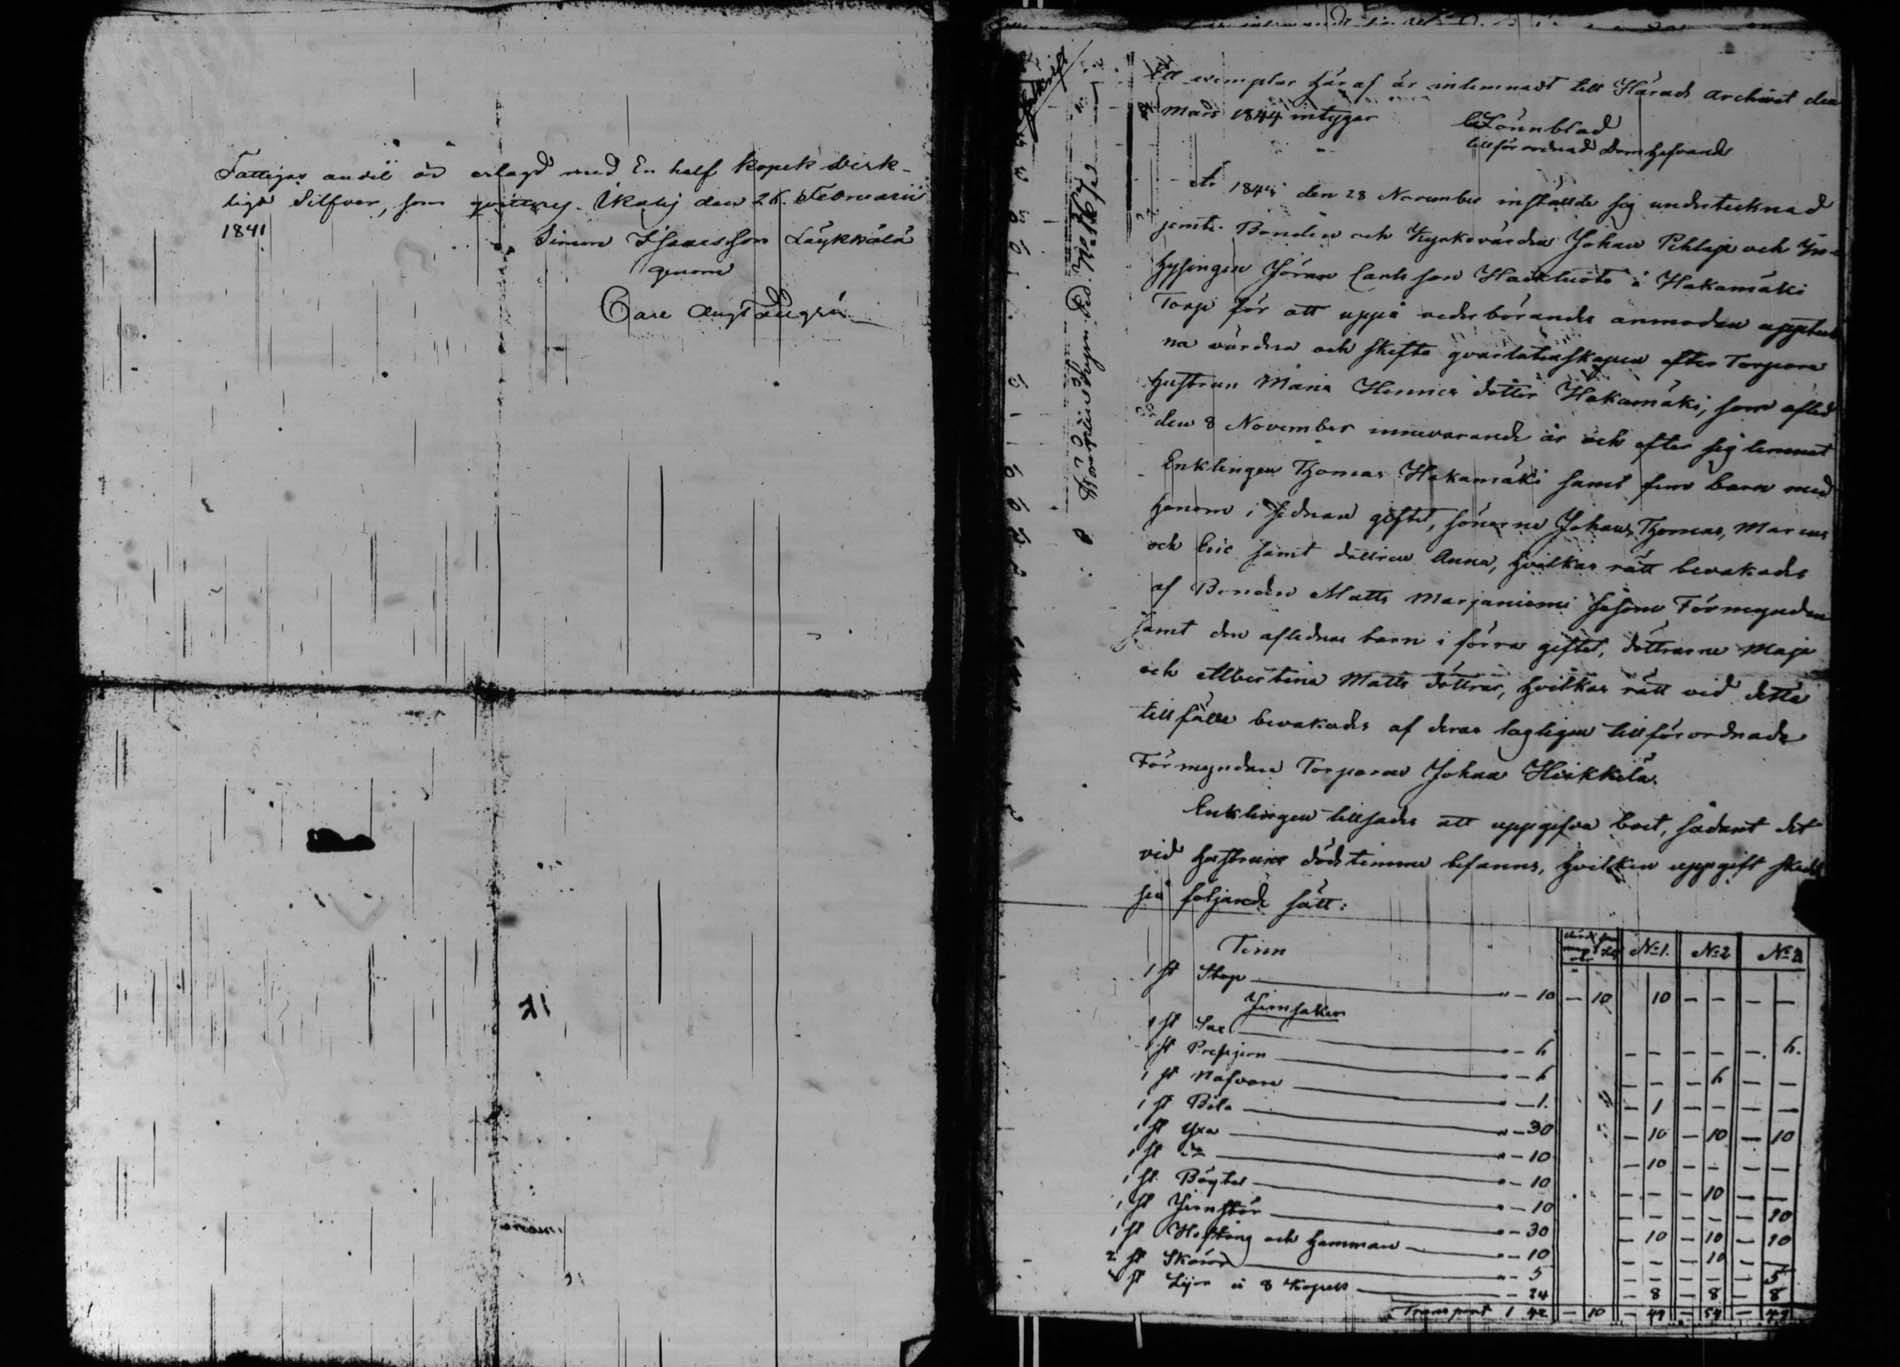 Fattigas andel är erlagd med En half kopek Verk-
ligt Silfver, som qvitteras. Ikalis den 26 Februarii
1841
Simon Isaacsson Läykkälä
genom
Carl Aug
Ett exemplar häraf är inlemnadt till Härads Archivet den
Mars 1844 intygar
C Lönnblad
tillförordnad Domhafvande
År 184 den 28 November inställde sig undertecknad
jemte Bonden och Kyrkovärden Johan Pihlaja och In-
hysingen Jöran Carlsson i Hakamäki
Torp för att uppå vederbörandes anmodan uppteck
na värdera och skifta qvarlåtenskapen efter Torpare
hustrun Maria Henrics dotter Hakamäki, som afled
den 8 November innevarande år och efter sig lemnat
Enklingen Thomas Hakamäki samt fem barn med
honom i sednare giftet, sönerne Johan, Thomas, Marcus
och Eric samt dottren Anna, hvilkas rätt bevakades
af Bonden Matts Marjaniemi såsom Förmyndare
samt den aflednas barn i förra giftet, döttrarne Maja
och Albertina Matts döttrar, hvilkas rätt vid detta
tillfälle bevakades af deras lagligen tillförordnade
Förmyndare Torparen Johan Heikkilä.
Enklingen tillsades att uppgifva boet, sådant det
vid hustruns dödstimma befanns, hvilken uppgift skedde
på följande sätt:
Tenn No 1. No 2 No 3
1 st Stop " - 10 - 10 10 - - - -
Jernsaker
1 st Sax " - 6 - - - - - 6.
1 st Pressjern " - 6 - - - 6 - -
1 st Nafvare " - 1. - 1 - - - -
1 st Bila " - 30 - 10 - 10 - 10
1 st Yxa " - 10 - 10 - - - -
1 st do " - 10 - - - 10 - -
1 st Böytel " - 10 - - - - - 10
1 st Jernstör " - 30 - 10 - 10 - 10
1 st Hoftång och hammare " - 10 - - - 10 - -
2 st Skäror " - 5 - - - - - 5
3 st Lijor à 8 Kopek - 24 - 8 - 8 - 8
Transport 1 42 - 10 - 49 - 54 - 49